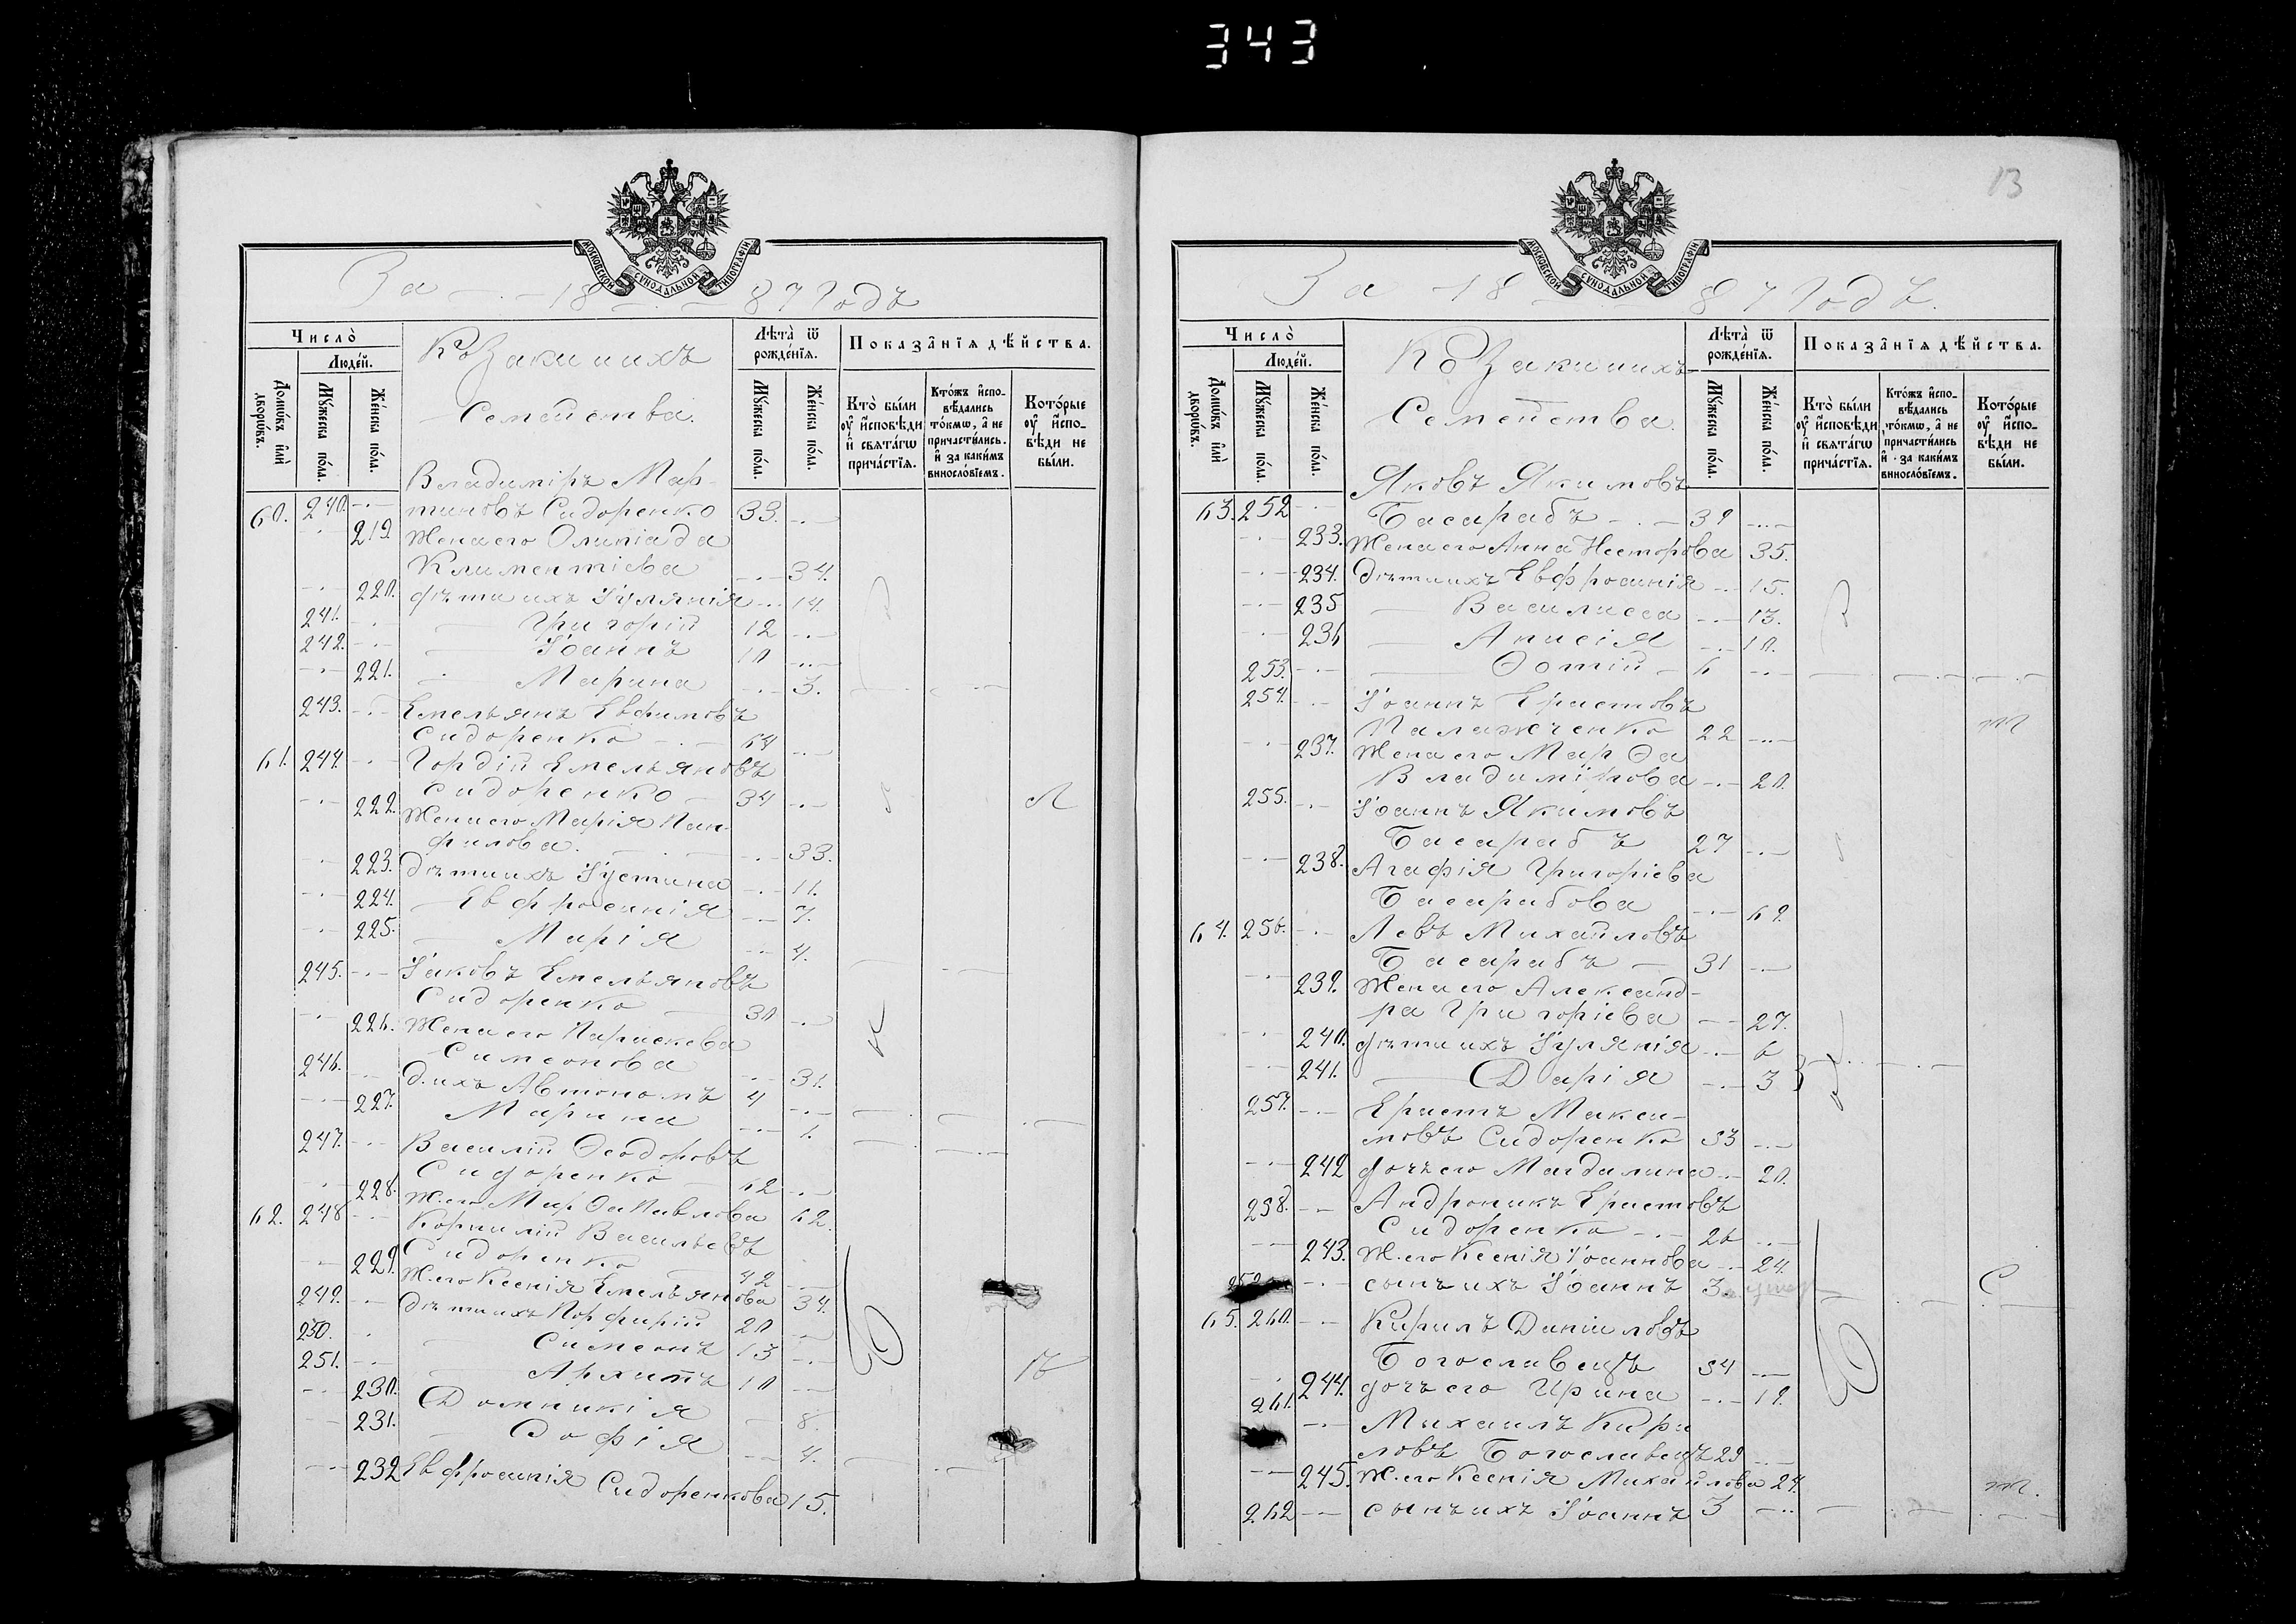 343
МОСКОВСКОЙ СѴНОДАЛЬНОЙ ТИПОГРАФІИ
За 18 87 Годъ
Число̀
Людéй.
Домѡ́въ и҆лѝ дворѡ́въ.
Мꙋ́жеска по́ла.
Же́нска по́ла.
Козакиихъ
Семейства.
Лѣта̀ ѿ рожде́нїя.
Мꙋ́жеска по́ла.
Же́нска по́ла.
Показа̂нїя дѣ́йства.
Кто̀ бы́ли ᲂу҆ и҆́сповѣди и҆ свята́гѡ прича́стїя.
Кто́жъ и҆спо-вѣ́дались то́кмѡ, а҆ не причасти́лись. и҆ за каки́мъ виносло́вїемъ.
Кото́рые ᲂу҆ и҆́спо-вѣди не бы́ли.
Владиміръ Мар-
60. 240. тиновъ Сидоренко 33.
219. Жена его Олипіада
Климентіева 34.
220. дѣти ихъ Іулянія 14.
241. Григорій 12
242. Іоаннъ 10
221. Марина 3.
243. Емельянъ Евфимовъ
Сидоренко 64
61. 244. Гордій Емельяновъ
Сидоренко 34 Л
222. Жена его Марія Пан-
филова. 33.
223. дѣти ихъ Іустина 11.
224. Евфросинія 7.
225. Марія 4.
245. Іаковъ Емельяновъ
Сидоренко 30
226. Жена его Параскева
Симеонова 31.
246. д. ихъ Автономъ 4
227. Марина 1.
247. Василій Ѳеодоровъ
Сидоренко 62
228. Ж. его Марѳа Павлова 62.
62. 248 Корнилій Васильевъ
Сидоренко 42
229. Ж. его Ксенія Емельянова 34.
249. дѣти ихъ Порфирій 20
250. Симеонъ 13
251. Архипъ 10
230. Домникія 8.
231. Софія 4.
232 Евфросинія Сидоренкова 15.
13
МОСКОВСКОЙ СѴНОДАЛЬНОЙ ТИПОГРАФІИ
За 18 87 Годъ.
Число̀
Людéй.
Домѡ́въ и҆лѝ дворѡ́въ.
Мꙋ́жеска по́ла.
Же́нска по́ла.
Козакиихъ
Семейства.
Лѣта̀ ѿ рожде́нїя.
Мꙋ́жеска по́ла.
Же́нска по́ла.
Показа̂нїя дѣ́йства.
Кто̀ бы́ли ᲂу҆ и҆́сповѣди и҆ свята́гѡ прича́стїя.
Кто́жъ и҆спо-вѣ́дались то́кмѡ, а҆ не причасти́лись и҆ за каки́мъ виносло́вїемъ.
Кото́рые ᲂу҆ и҆́спо-вѣди не бы́ли.
Яковъ Якимовъ
63. 252 Басарабъ 39
233. Жена его Анна Несторова 35.
234. дѣти ихъ Евфросинія 15.
235 Василисса 13.
236 Анисія 10.
253. Ѳотій 6
254. Іоаннъ Ерастовъ
Палажченко 22 т
237. Жена его Марѳа
Владимірова 20.
255. Іоаннъ Якимовъ
Басарабъ 27
238. Агафія Григоріева
Басарабова 69.
64. 256. Левъ Михайловъ
Басарабъ 31
239. Жена его Александ-
ра Григоріева 27.
240. дѣти ихъ Іулянія 6
241. Дарія 3
257. Ерастъ Макси-
мовъ Сидоренко 53
242 дочь его Магдалина 20.
238. Андроникъ Ерастовъ
Сидоренко 26
243. Ж. его Ксенія Іоаннова 24.
сынъ ихъ Іоаннъ 3. С
65. 260. Кирилъ Даніиловъ
Богославецъ 54
244. дочь его Ирина 19.
261. Михаилъ Кири
ловъ Богославецъ 29
245. Ж. его Ксенія Михайлова 24. т.
262 сынъ ихъ Іоаннъ 3